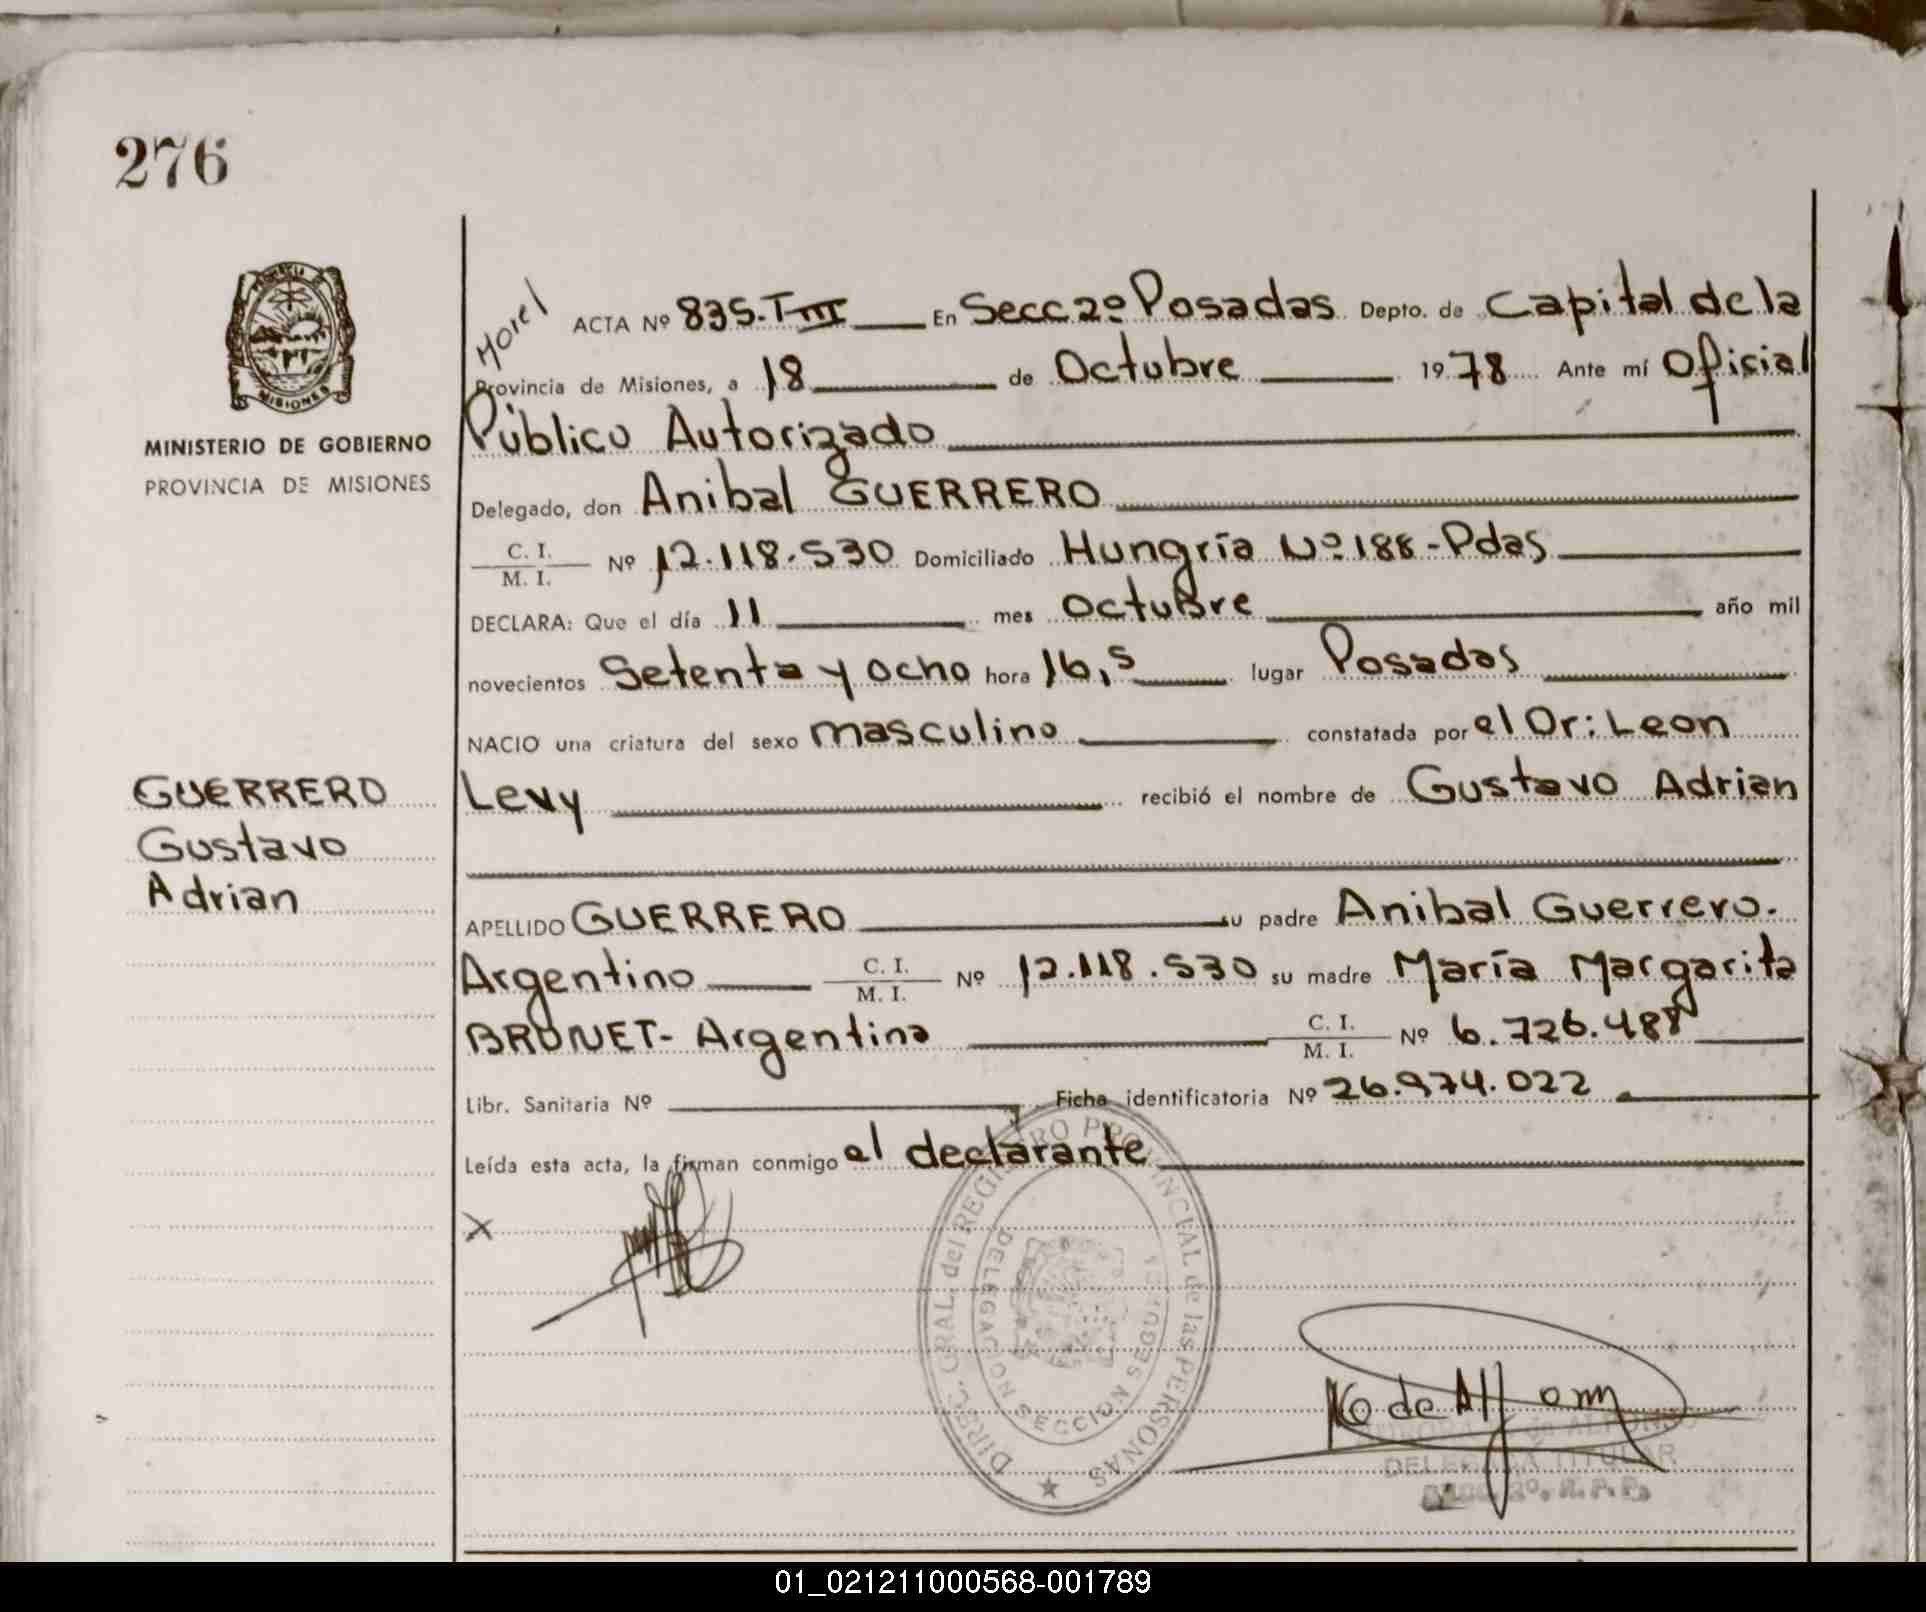 276
PROVINCIA DE
MISIONES
MINISTERIO DE GOBIERNO
PROVINCIA DE MISIONES
Morel
ACTA Nº 835-T-III En Secc 2º Posadas Depto. de Capital de la
Provincia de Misiones, a 18 de Octubre 1978 Ante mí Oficial
Público Autorizado
Delegado, don Anibal GUERRERO
C. I.
M. I. Nº 12.118.530 Domiciliado Hungría Nº 188-Pdas
DECLARA: Que el día 11 mes octubre año mil
novecientos Setenta y ocho hora 16,5 lugar Posadas
NACIO una criatura del sexo masculino constatada por el Dr: Leon
Levy recibió el nombre de Gustavo Adrian
GUERRERO
Gustavo
Adrian
APELLIDO GUERRERO su padre Anibal Guerrero.
Argentino C. I.
M. I. Nº 12.118.530 su madre María Margarita
BRUNET- Argentina C. I.
M. I. Nº 6.726.488
Libr. Sanitaria Nº Ficha identificatoria Nº 26.974.022
Leída esta acta, la firman conmigo el declarante
X
DIREC. GRAL. del REGISTRO PROVINCIAL de las PERSONAS
DELEGACION SECCION SEGUN
de Alfonso
de ALFONSO
DELEGADA TITULAR
SECC. 2º. R. P. P.
01_021211000568-001789